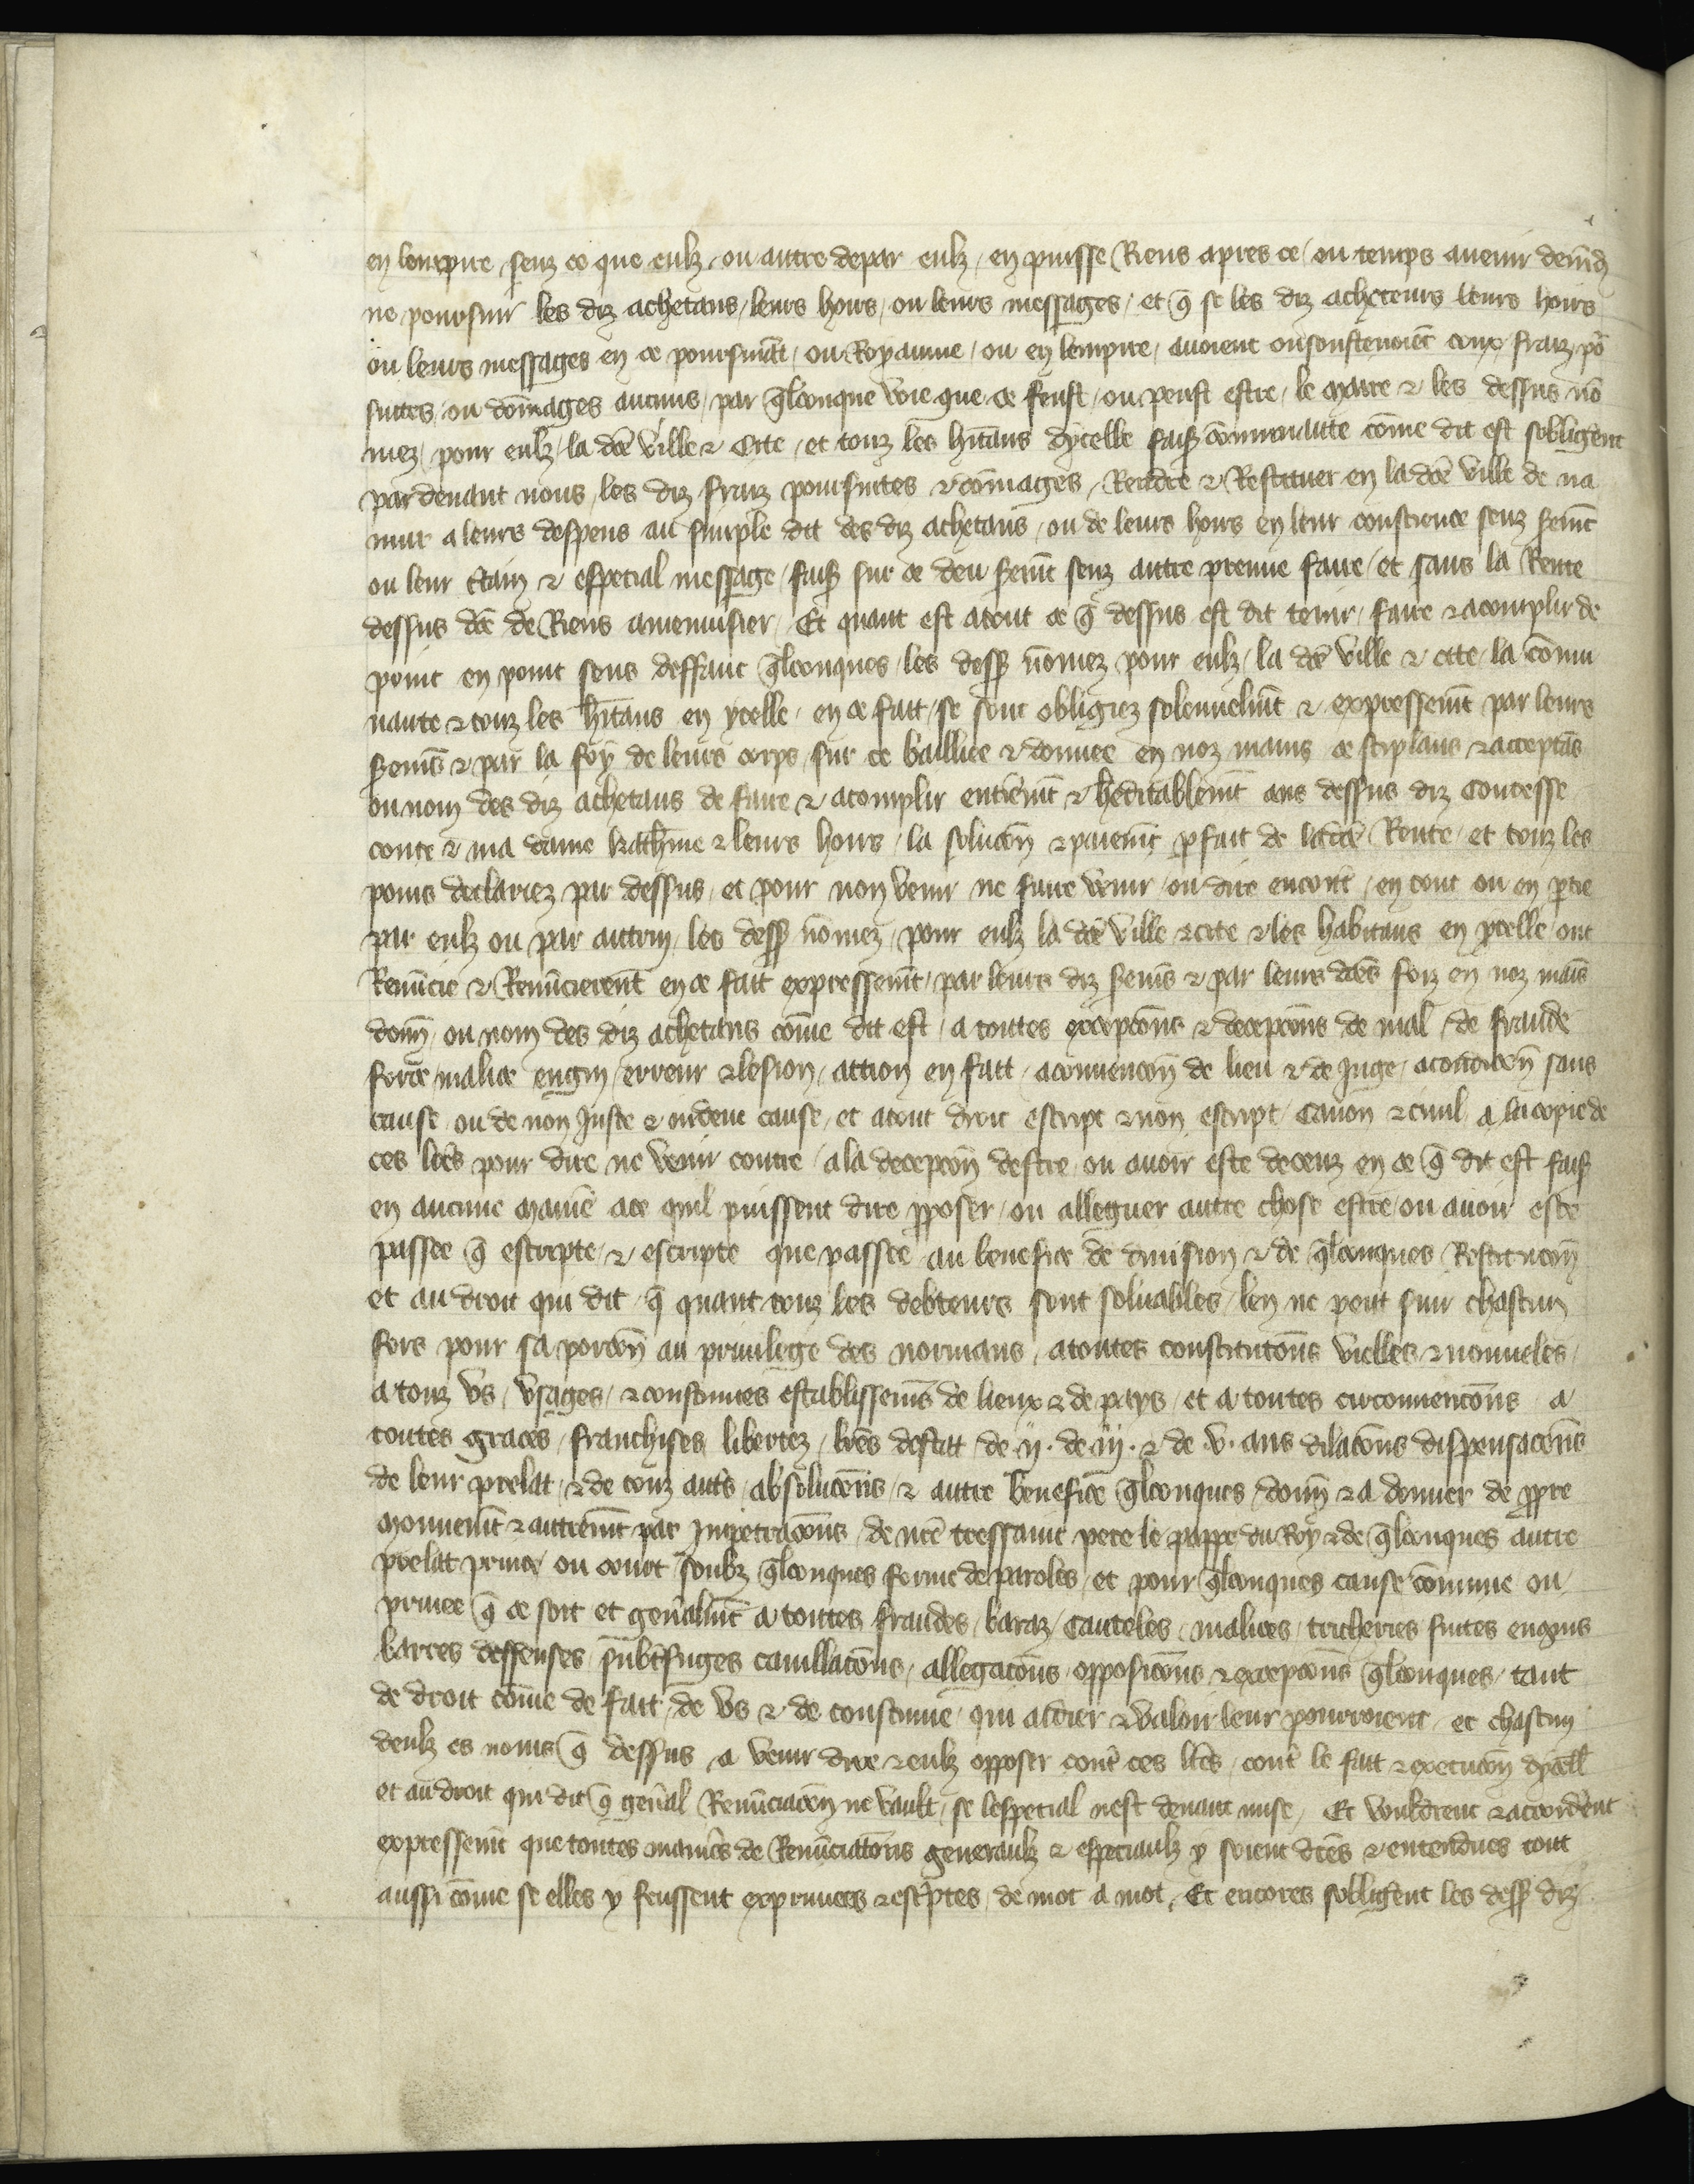 en lempire senz ce que eulz ou autre de par eulz en puisse Riens apres ce ou temps avenir demād
ne poursuir les diz achetans leurs hoirs ou leurs messages et q̄ se les diz acheteurs leurs hoirs
ou leurs messages en ce poursuiāt ou Royaume ou en lempire avoient ou soustenoiēt couz fraiz pō
suites ou dōmages aucuns par q̄lconque voie que ce feust ou peust estre le maire & les dessus nō
mez pour eulz la dc̄e ville & Cite et touz les hītans dycelle fais̄ cōmunaute cōme dit est sobligēnt
par devant nous les diz fraiz poursuites & dōmages Rendre & Restituer en la dc̄e ville de na
mur a leurs despens au simple dit des diz achetans ou de leurs hoirs en leur conscience senz serm̄t
ou leur c̄tain & especial message fais̄ sur ce deu serm̄t senz autre preuve faire et sans la Rente
dessus dc̄e de Riens amenuisier Et quant est a tout ce q̄ dessus est dit tenir faire & acomplir de
point en point sens deffaut q̄lconques les dess̄ nōmez pour eulz la dc̄e ville & cite la cōmu
naute & touz les hītans en ycelle en ce fait se sont obligiez solennelm̄t & expressem̄t par leurs
serm̄s & par la foy de leurs corps sur ce baillie & donnee en noz mains ce stiplans & acceptās
ou nom des diz achetans de faire & acomplir entierem̄t & h̄editablem̄t aus dessus diz Contesse
conte & ma dame kath̄ine & leurs hoirs la solucōn & paiem̄t p̄fait de la dc̄e Rente et touz les
poins declariez par dessus et pour non venir ne faire venir ou dire encont̄ en tout ou en p̄tie
par eulz ou par autrui les dess̄ nōmez pour eulz la dc̄e ville & cite & les habitans en ycelle ont
Renūcie & Renūcierent en ce fait expressem̄t par leurs diz serm̄s & par leurs dc̄es foiz en noz maīs
donn̄ ou nom des diz achetans cōme dit est a toutes excepcōns & decepcōns de mal de fraude
force malice engin erreur & lesion action en fait a convencōn de lieu & de Juge a condicōn sans
cause ou de non Juste & indeue cause et a tout droit escript & non escript Canon & civil a la copie de
ces lr̄es pour dire ne venir contre a la decepcōn destre ou avoir este deceuz en ce q̄ dit est fais̄
en aucune manie᷑ a ce quil puissent dire p̄poser ou alleguer autre chose estre ou avoir este
passee q̄ escripte & escripte que passee au benefice de division & de q̄lconques Restitucōn
et au droit qui dit q̄ quant touz les debteurs sont soluables len ne peut suir chascun
fors pour sa porcōn au privilege des normans a toutes constitucōns vielles & nouveles
a touz us usages & coustumes establissem̄s de lieux & de pays et a toutes circonvencōns a
toutes graces franchises libertez lr̄es destat de .ij. de .iij. & de .v. ans dilacōns dispensacōns
de leur prelat & de touz aut̄s absolucōns & autre benefice q̄lconques donn̄ & a donner de p̄pre
mouvem̄t & autrem̄t par Jmpetracōns de nr̄e tressaint pere le pappe du Roy & de q̄lconques autre
prelat prince ou court soubz q̄lconques forme de paroles et pour q̄lconques cause cōmune ou
privee q̄ ce soit et gen̄alm̄t a toutes fraudes baraz cauteles malices tricheries fuites engins
barres deffenses subt̄fuges cavillacōns allegacōns opposicōns & excepcōns q̄lconques tant
de droit cōme de fait de us & de coustume qui aidier & valoir leur pourroient et chascun
deulz es noms q̄ dessus a venir dire & eulz opposer cont̄ ces lr̄es cont̄ le fait & execucōn dycell̄
et au droit qui dit q̄ gen̄al Renūciacōn ne vault se lespecial nest devant mise Et vouldrent & accorderēnt
expressem̄t que toutes manie᷑s de Renūciacōns generaulz & especiaulz y soient dc̄es & entendues tout
aussi cōme se elles y feussent exprimees & esc̄ptes de mot a mot Et encores sobligēnt les dess̄ diz